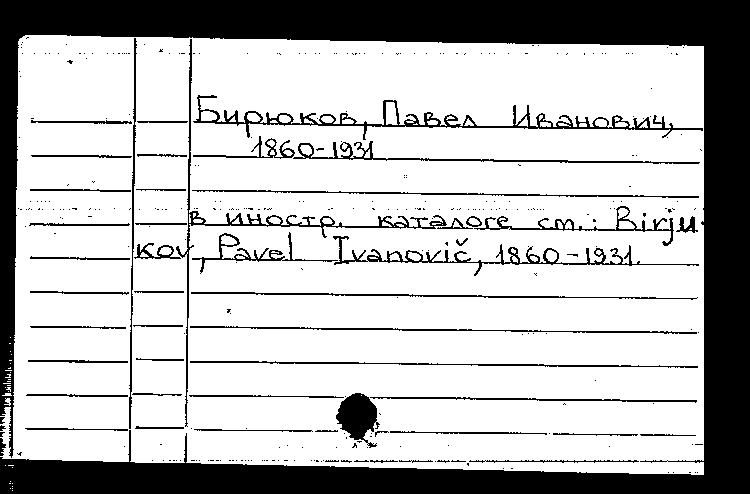 Бирюков, Павел Иванович,
1860-1931
в иностр. каталоге см.: Birju-
kov, Pavel Ivanovič, 1860-1931.